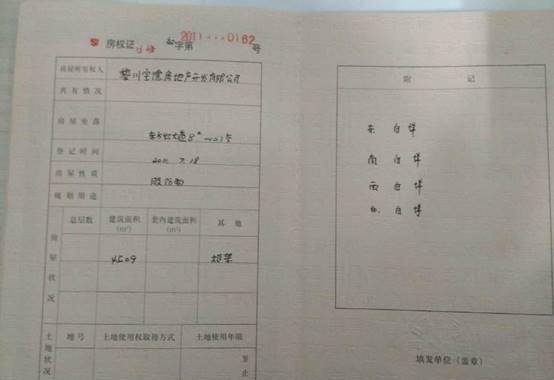 房权证 字第2011···0162号
房屋所有权人
房地产开发有限公司
共有情况
房屋坐落
登记时间 2011.7.18
房屋性质
规划用途
房屋状况
总层数 建筑面积(m²) 套内建筑面积(m²) 其他
4509 框架
土地状况
地号 土地使用权取得方式 土地使用年限
至
止
附记
东 自墙
南 自墙
西 自墙
北 自墙
填发单位(盖章)